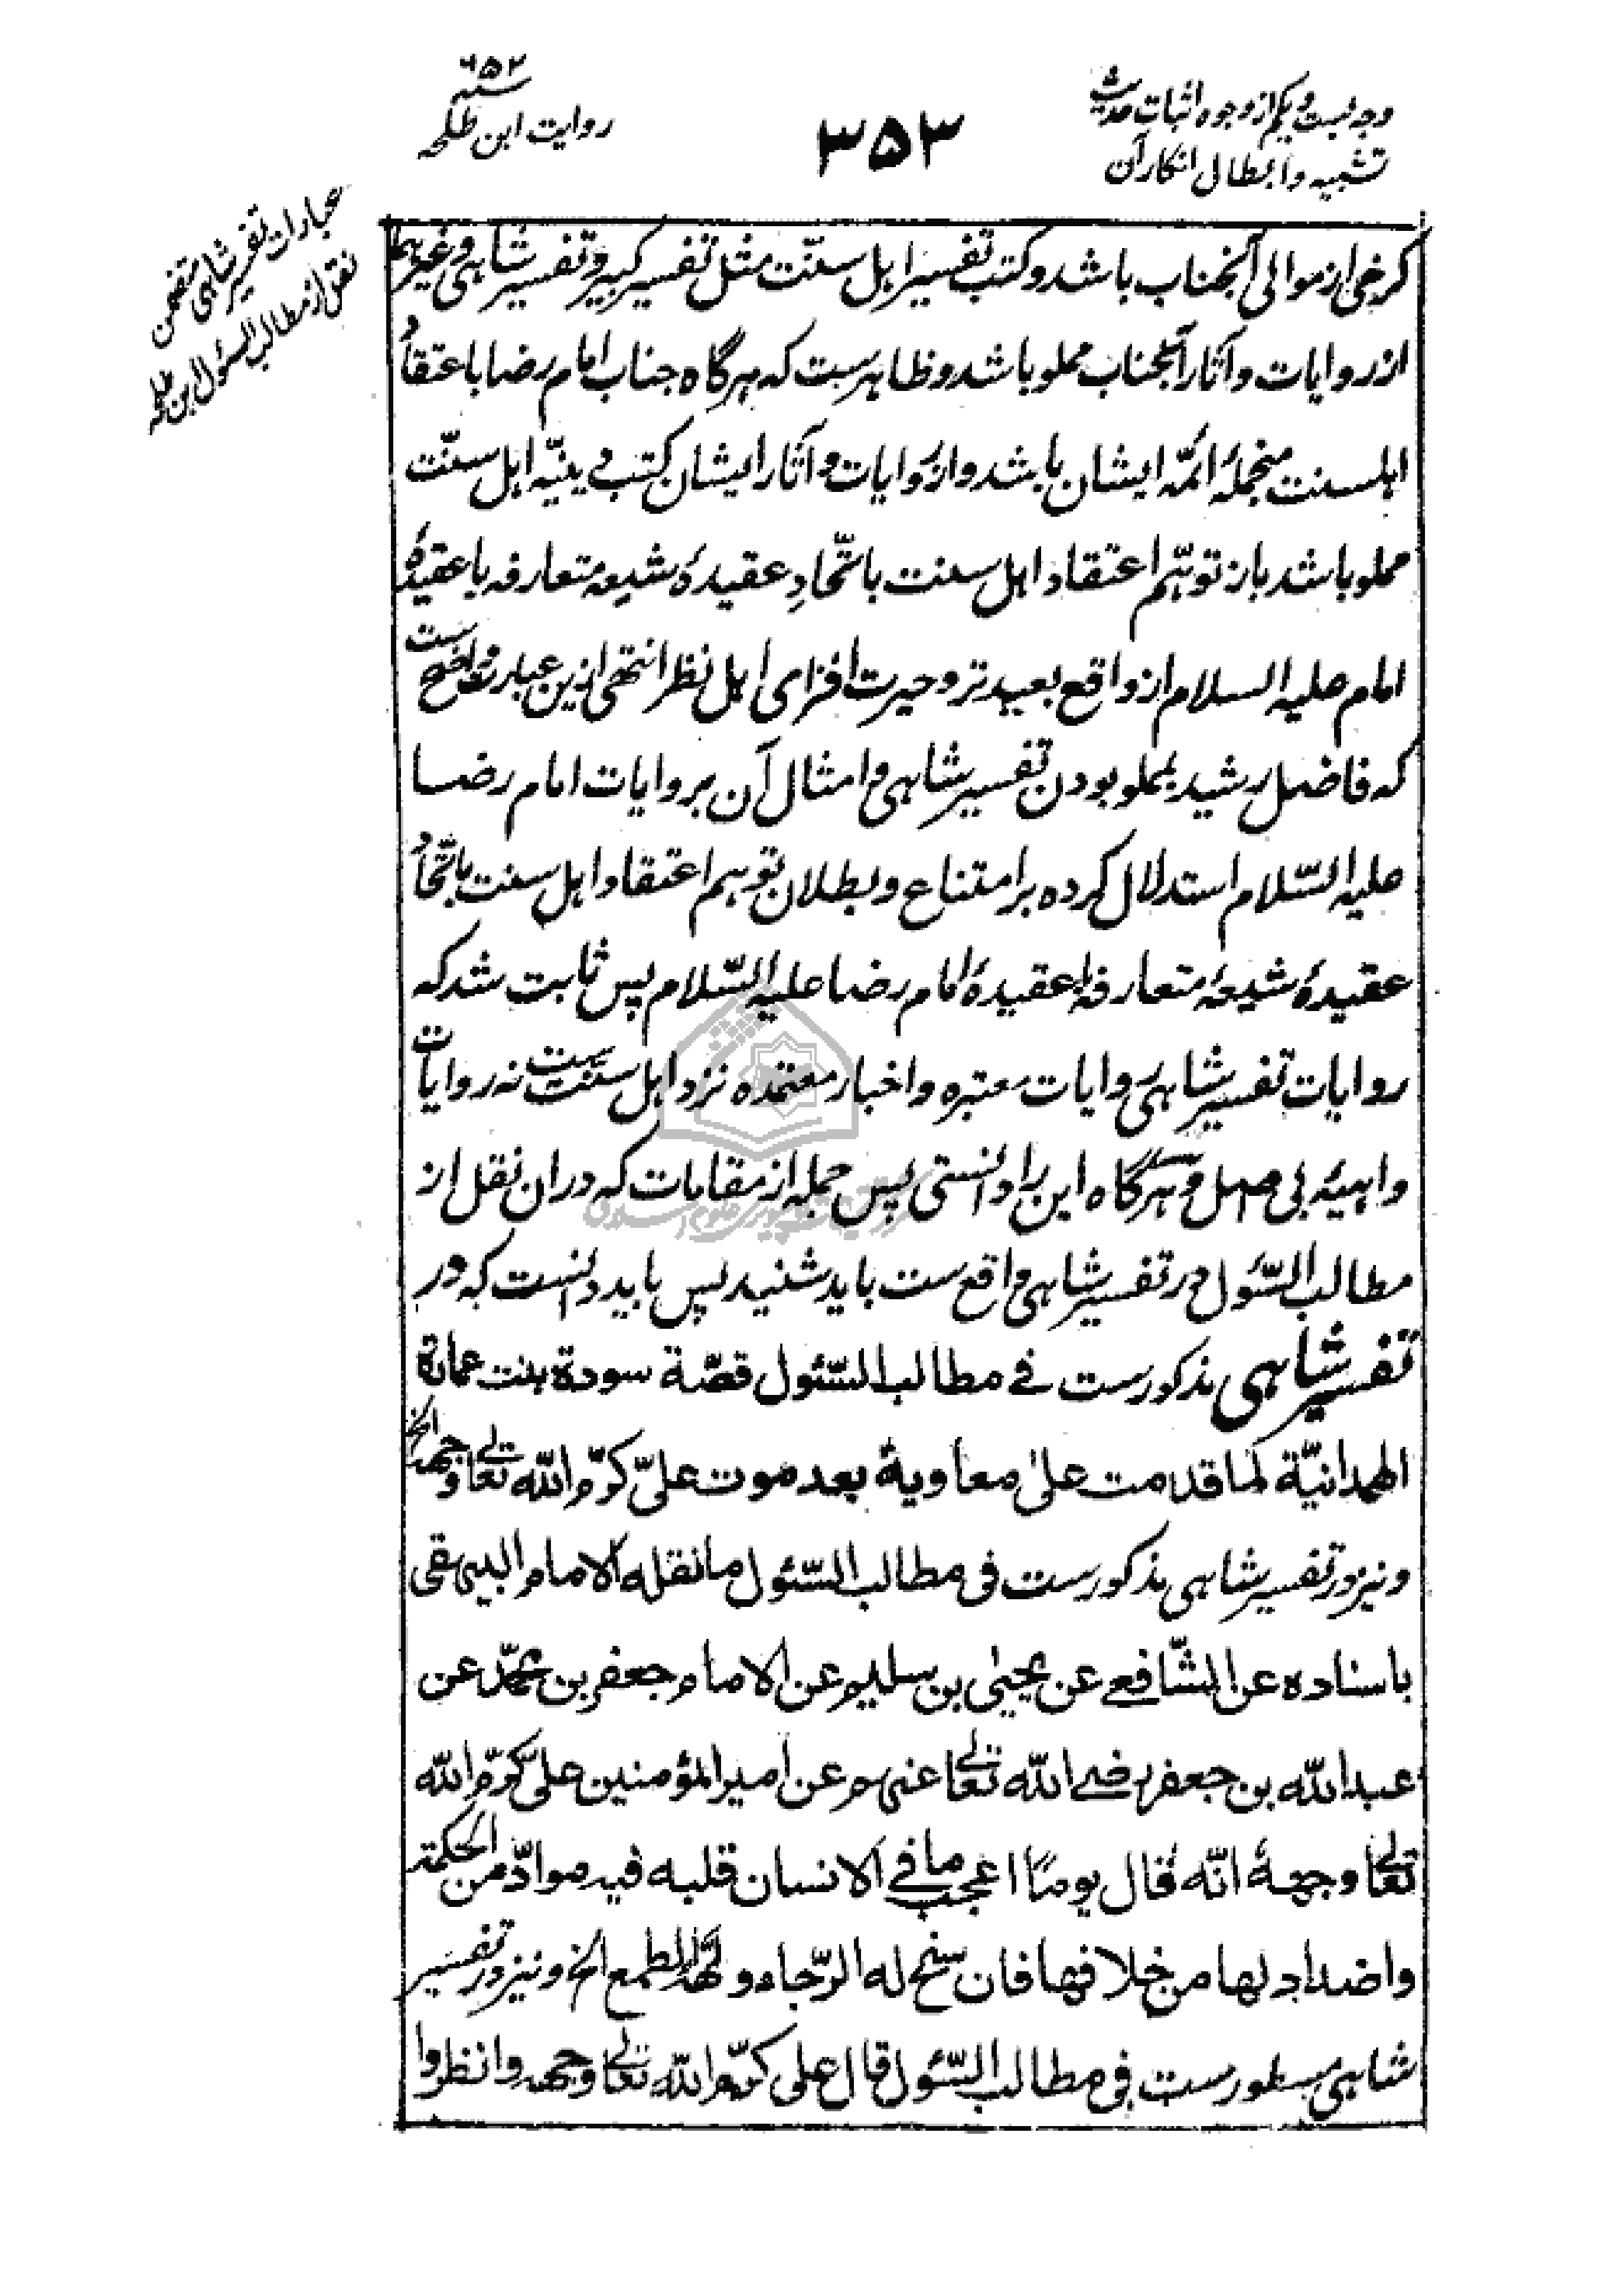 وجه بست و یکم از وجوه اثبات حدیث
تشبیه و ابطال انکار آن
۳۵۳
سنه ۶۵۲
روایت ابن طلحه
عبارات تفسیر شاهی متضمن
نقل از مطالب السئول ابن طلحه
کرخی از موالی آنجناب باشد و کتب تفسیر اهل سنّت مثل تفسیر کبیر و تفسیر شاهی و غیرهما
از روایات و آثار آنجناب مملو باشد و ظاهرست که هرگاه جناب امام رضا باعتقاد
اهلسنت منجملهٔ ائمّه ایشان باشد و از روایات و آثار ایشان کتب دینیّه اهل سنّت
مملو باشد باز توهّم اعتقاد اهل سنت باتّحادِ عقیدهٔ شیعه متعارفه با عقیدهٔ
امام علیه السلام از واقع بعیدتر و حیرت افزای اهل نظر انتهی ازین عبارت واضح ست
که فاضل رشید بمملو بودن تفسیر شاهی و امثال آن بروایات امام رضا
علیه السّلام استدلال کرده بر امتناع و بطلان توهم اعتقاد اهل سنت باتّحاد
عقیدهٔ شیعهٔ متعارفه با عقیدهٔ امام رضا علیه السّلام پس ثابت شد که
روایات تفسیر شاهی روایات معتبره و اخبار معتمده نزد اهل سنت ست نه روایات
واهیهٔ بی اصل و هرگاه این را دانستی پس جمله از مقامات که دران نقل از
مطالب السّئول در تفسیر شاهی واقع ست باید شنید پس باید دانست که در
تفسیر شاهی مذکورست فے مطالب السّئول قصّة سودة بنت عمارة
الهمدانیّة لما قدمت علیٰ معاویة بعد موت علیّ کرّم اللّه تعالی وجهه الخ
و نیز در تفسیر شاهی مذکورست فی مطالب السّئول ما نقله الامام البیهقی
باسناده عن الشّافعے عن یحییٰ بن سلیم عن الامام جعفر بن محمّد عن
عبد اللّه بن جعفر رضے اللّه تعالی عنهم عن امیر المؤمنین علیّ کرّم اللّه
تعالی وجههٔ انّه قال یومًا اعجب ما فے الانسان قلبه فیه موادّ من الحکمة
و اضداد لها من خلافها فان سنح له الرّجاء ولّهه الطمع الخ و نیز در تفسیر
شاهی مسطورست فی مطالب السّئول قال علی کرّم اللّه تعالی وجهه وانظروا